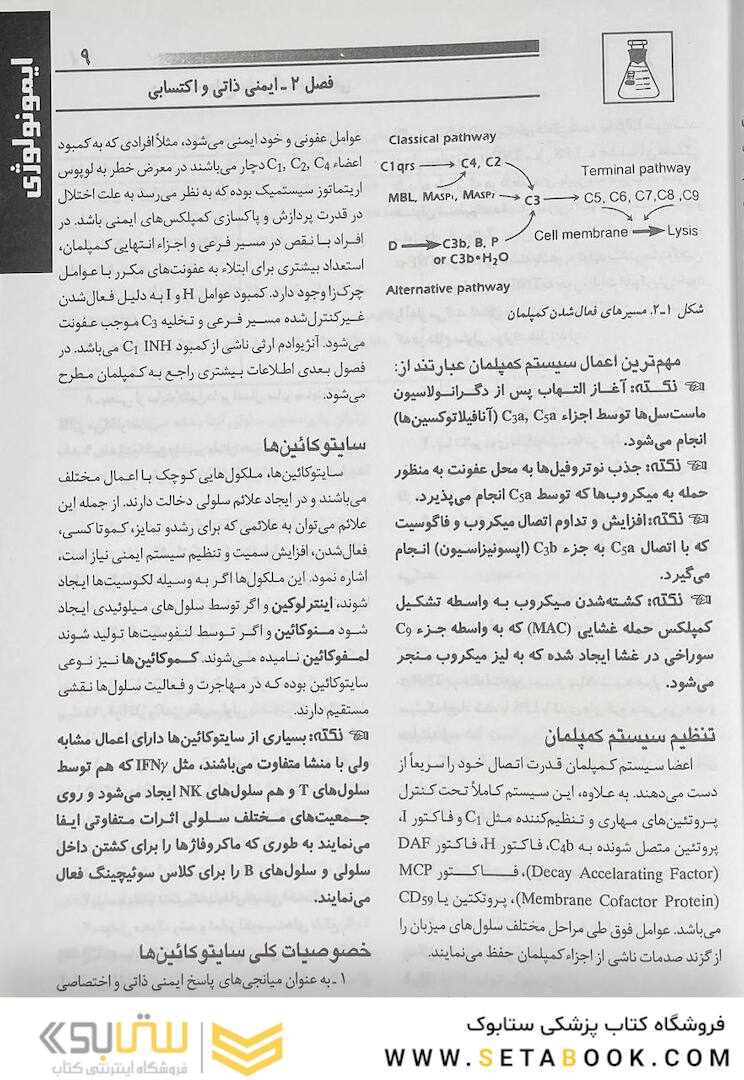 ایمونولوژی
۹
فصل ۲ ـ ایمنی ذاتی و اکتسابی
Classical pathway
C1qrs
C4, C2
MBL, MASP1, MASP2
C3
Terminal pathway
C5, C6, C7,C8 ,C9
D
C3b, B, P
or C3b•H2O
Cell membrane
Lysis
Alternative pathway
شکل ۱-۲. مسیرهای فعال‌شدن کمپلمان
مهم‌ترین اعمال سیستم کمپلمان عبارتند از:
نکته: آغاز التهاب پس از دگرانولاسیون
ماست‌سل‌ها توسط اجزاء C3a, C5a (آنافیلاتوکسین‌ها)
انجام می‌شود.
نکته: جذب نوتروفیل‌ها به محل عفونت به منظور
حمله به میکروب‌ها که توسط C5a انجام می‌پذیرد.
نکته: افزایش و تداوم اتصال میکروب و فاگوسیت
که با اتصال C5a به جزء C3b (اپسونیزاسیون) انجام
می‌گیرد.
نکته: کشته‌شدن میکروب به واسطه تشکیل
کمپلکس حمله غشایی (MAC) که به واسطه جزء C9
سوراخی در غشا ایجاد شده که به لیز میکروب منجر
می‌شود.
تنظیم سیستم کمپلمان
اعضا سیستم کمپلمان قدرت اتصال خود را سریعاً از
دست می‌دهند. به علاوه، این سیستم کاملاً تحت کنترل
پروتئین‌های مهاری و تنظیم‌کننده مثل C1 و فاکتور I،
پروتئین متصل شونده به C4b، فاکتور H، فاکتور DAF
(Decay Accelarating Factor)، فاکتور MCP
(Membrane Cofactor Protein)، پروتکتین یا CD59
می‌باشد. عوامل فوق طی مراحل مختلف سلول‌های میزبان را
از گزند صدمات ناشی از اجزاء کمپلمان حفظ می‌نمایند.
عوامل عفونی و خود ایمنی می‌شود، مثلاً افرادی که به کمبود
اعضاء C1, C2, C4 دچار می‌باشند در معرض خطر به لوپوس
اریتماتوز سیستمیک بوده که به نظر می‌رسد به علت اختلال
در قدرت پردازش و پاکسازی کمپلکس‌های ایمنی باشد. در
افراد با نقص در مسیر فرعی و اجزاء انتهایی کمپلمان،
استعداد بیشتری برای ابتلاء به عفونت‌های مکرر با عوامل
چرک‌زا وجود دارد. کمبود عوامل H و I به دلیل فعال‌شدن
غیرکنترل‌شده مسیر فرعی و تخلیه C3 موجب عفونت
می‌شود. آنژیوادم ارثی ناشی از کمبود C1 INH می‌باشد. در
فصول بعدی اطلاعات بیشتری راجع به کمپلمان مطرح
می‌شود.
سایتوکائین‌ها
سایتوکائین‌ها، ملکول‌هایی کوچک با اعمال مختلف
می‌باشند و در ایجاد علائم سلولی دخالت دارند. از جمله این
علائم می‌توان به علائمی که برای رشدو تمایز، کموتاکسی،
فعال‌شدن، افزایش سمیت و تنظیم سیستم ایمنی نیاز است،
اشاره نمود. این ملکول‌ها اگر به وسیله لکوسیت‌ها ایجاد
شوند، اینترلوکین و اگر توسط سلول‌های میلوئیدی ایجاد
شود منوکائین و اگر توسط لنفوسیت‌ها تولید شوند
لمفوکائین نامیده می‌شوند. کموکائین‌ها نیز نوعی
سایتوکائین بوده که در مهاجرت و فعالیت سلول‌ها نقشی
مستقیم دارند.
نکته: بسیاری از سایتوکائین‌ها دارای اعمال مشابه
ولی با منشا متفاوت می‌باشند، مثل IFNγ که هم توسط
سلول‌های T و هم سلول‌های NK ایجاد می‌شود و روی
جمعیت‌های مختلف سلولی اثرات متفاوتی ایفا
می‌نمایند به طوری که ماکروفاژها را برای کشتن داخل
سلولی و سلول‌های B را برای کلاس سوئیچینگ فعال
می‌نمایند.
خصوصیات کلی سایتوکائین‌ها
۱ ـ به عنوان میانجی‌های پاسخ ایمنی ذاتی و اختصاصی
ستابوک
فروشگاه اینترنتی کتاب
فروشگاه کتاب پزشکی ستابوک
WWW.SETABOOK.COM